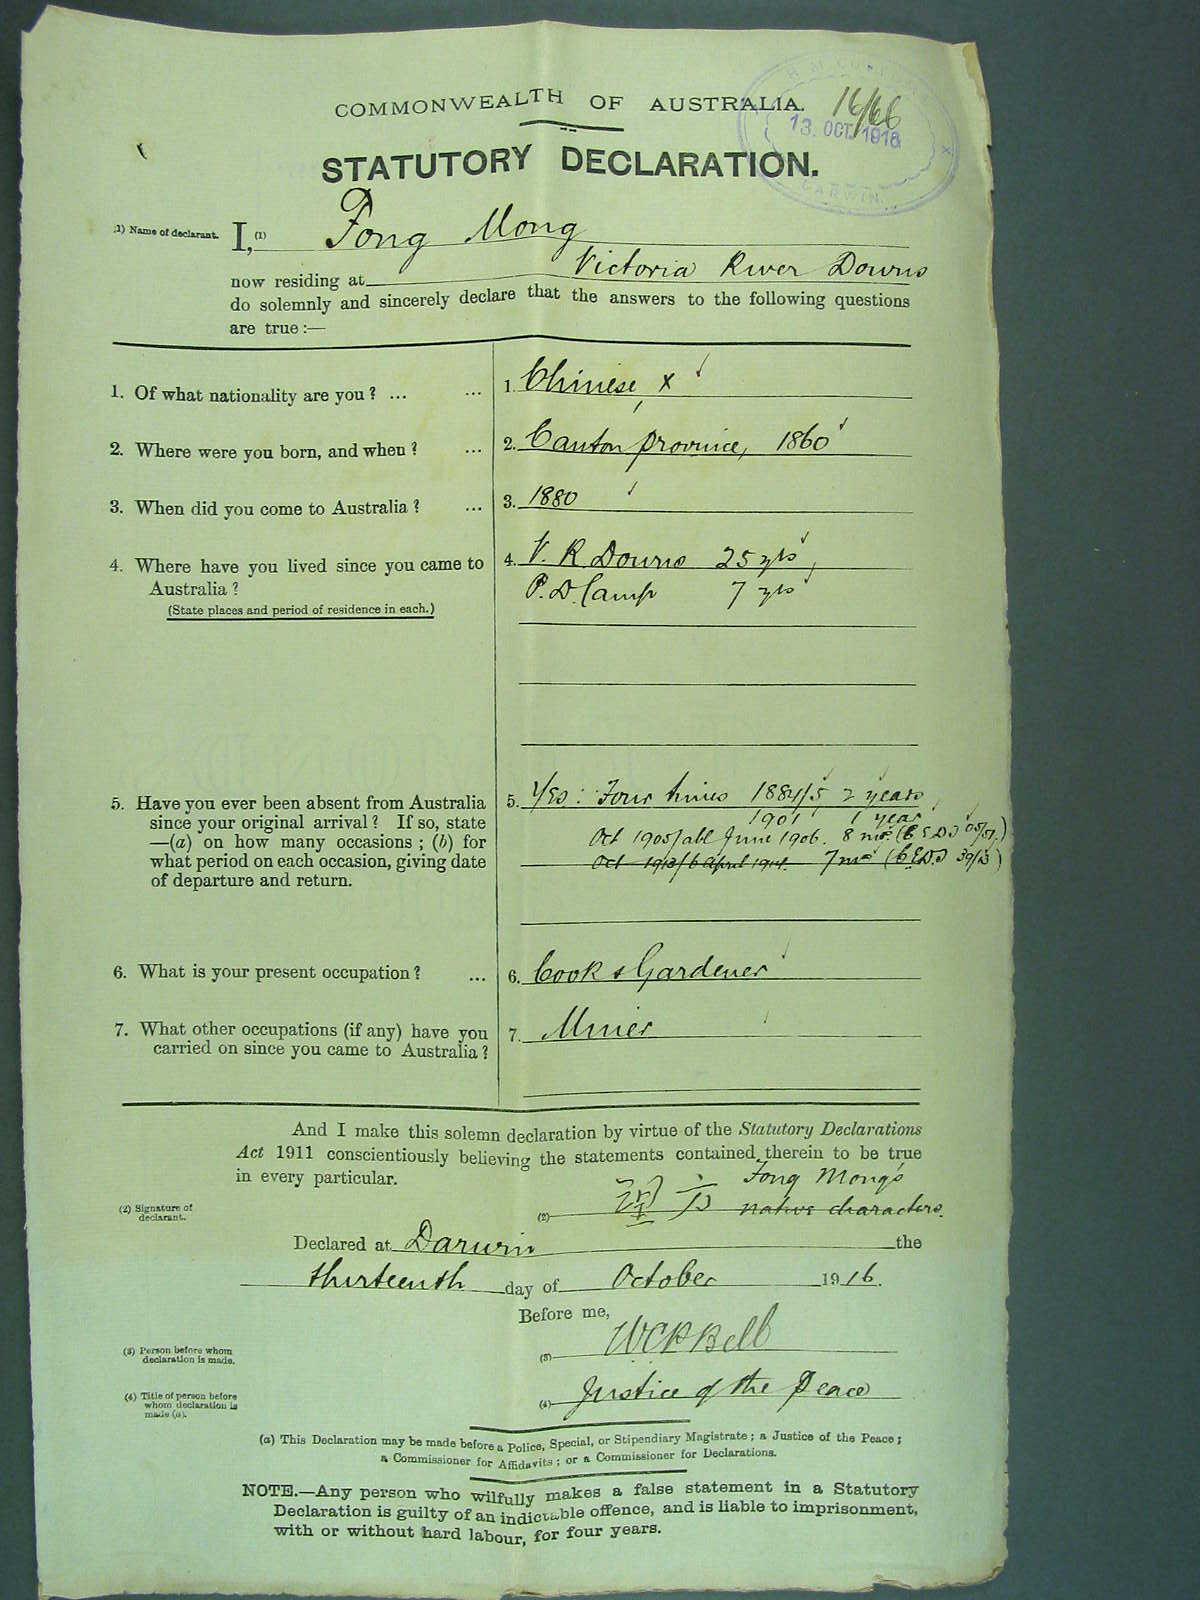 COMMONWEALTH OF AUSTRALIA.
16/66
H.M. CUSTOMS
13. OCT. 1916
DARWIN.
STATUTORY DECLARATION.
(1) Name of declarant. I, (1) Fong Mong
now residing at Victoria River Downs
do solemnly and sincerely declare that the answers to the following questions
are true :—
1. Of what nationality are you ? ... ... 1. Chinese x
2. Where were you born, and when ? ... 2. Canton province, 1860
3. When did you come to Australia ? ... 3. 1880
4. Where have you lived since you came to 4. V. R Downs 25 yrs,
Australia ? P. D. Camp 7 yrs
(State places and period of residence in each.)
5. Have you ever been absent from Australia 5. Yes: Four times 1884/5 2 years,
since your original arrival ? If so, state 1901 1 year
—(a) on how many occasions ; (b) for Oct 1905/abt June 1906. 8 mos (C E D T 05/51.)
what period on each occasion, giving date Oct 1913/6 April 1914. 7 mos (C.E.D.T 39/13)
of departure and return.
6. What is your present occupation ? ... 6. Cook & Gardener
7. What other occupations (if any) have you 7. Miner
carried on since you came to Australia ?
And I make this solemn declaration by virtue of the Statutory Declarations
Act 1911 conscientiously believing the statements contained therein to be true
in every particular. Fong Mong's
(2) Signature of declarant. (2) native characters.
Declared at Darwin the
thirteenth day of October 1916.
Before me,
(3) Person before whom declaration is made. (3) WCPBell
(4) Title of person before whom declaration is made (a). (4) Justice of the Peace
(a) This Declaration may be made before a Police, Special, or Stipendiary Magistrate ; a Justice of the Peace ;
a Commissioner for Affidavits ; or a Commissioner for Declarations.
NOTE.—Any person who wilfully makes a false statement in a Statutory
Declaration is guilty of an indictable offence, and is liable to imprisonment,
with or without hard labour, for four years.